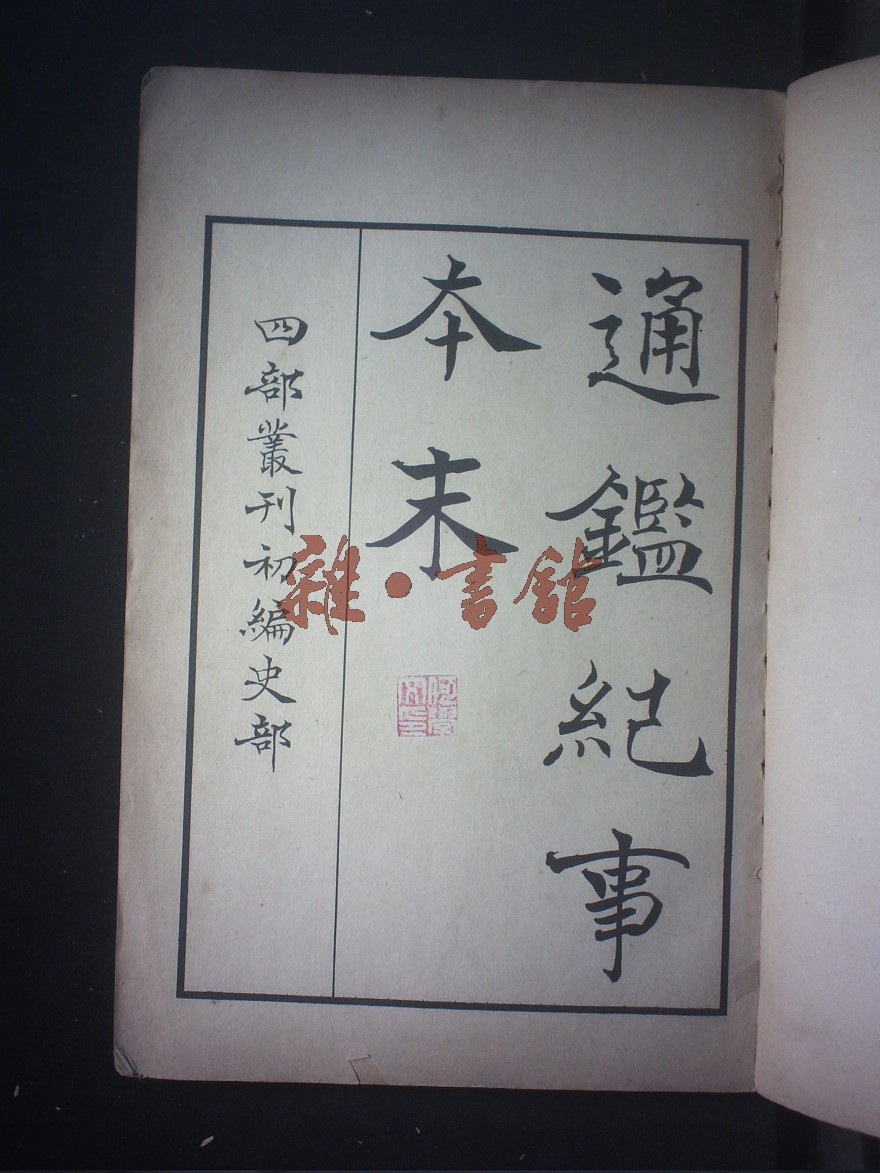 通鑑紀事
本末
四部叢刊初編史部
雜·書館